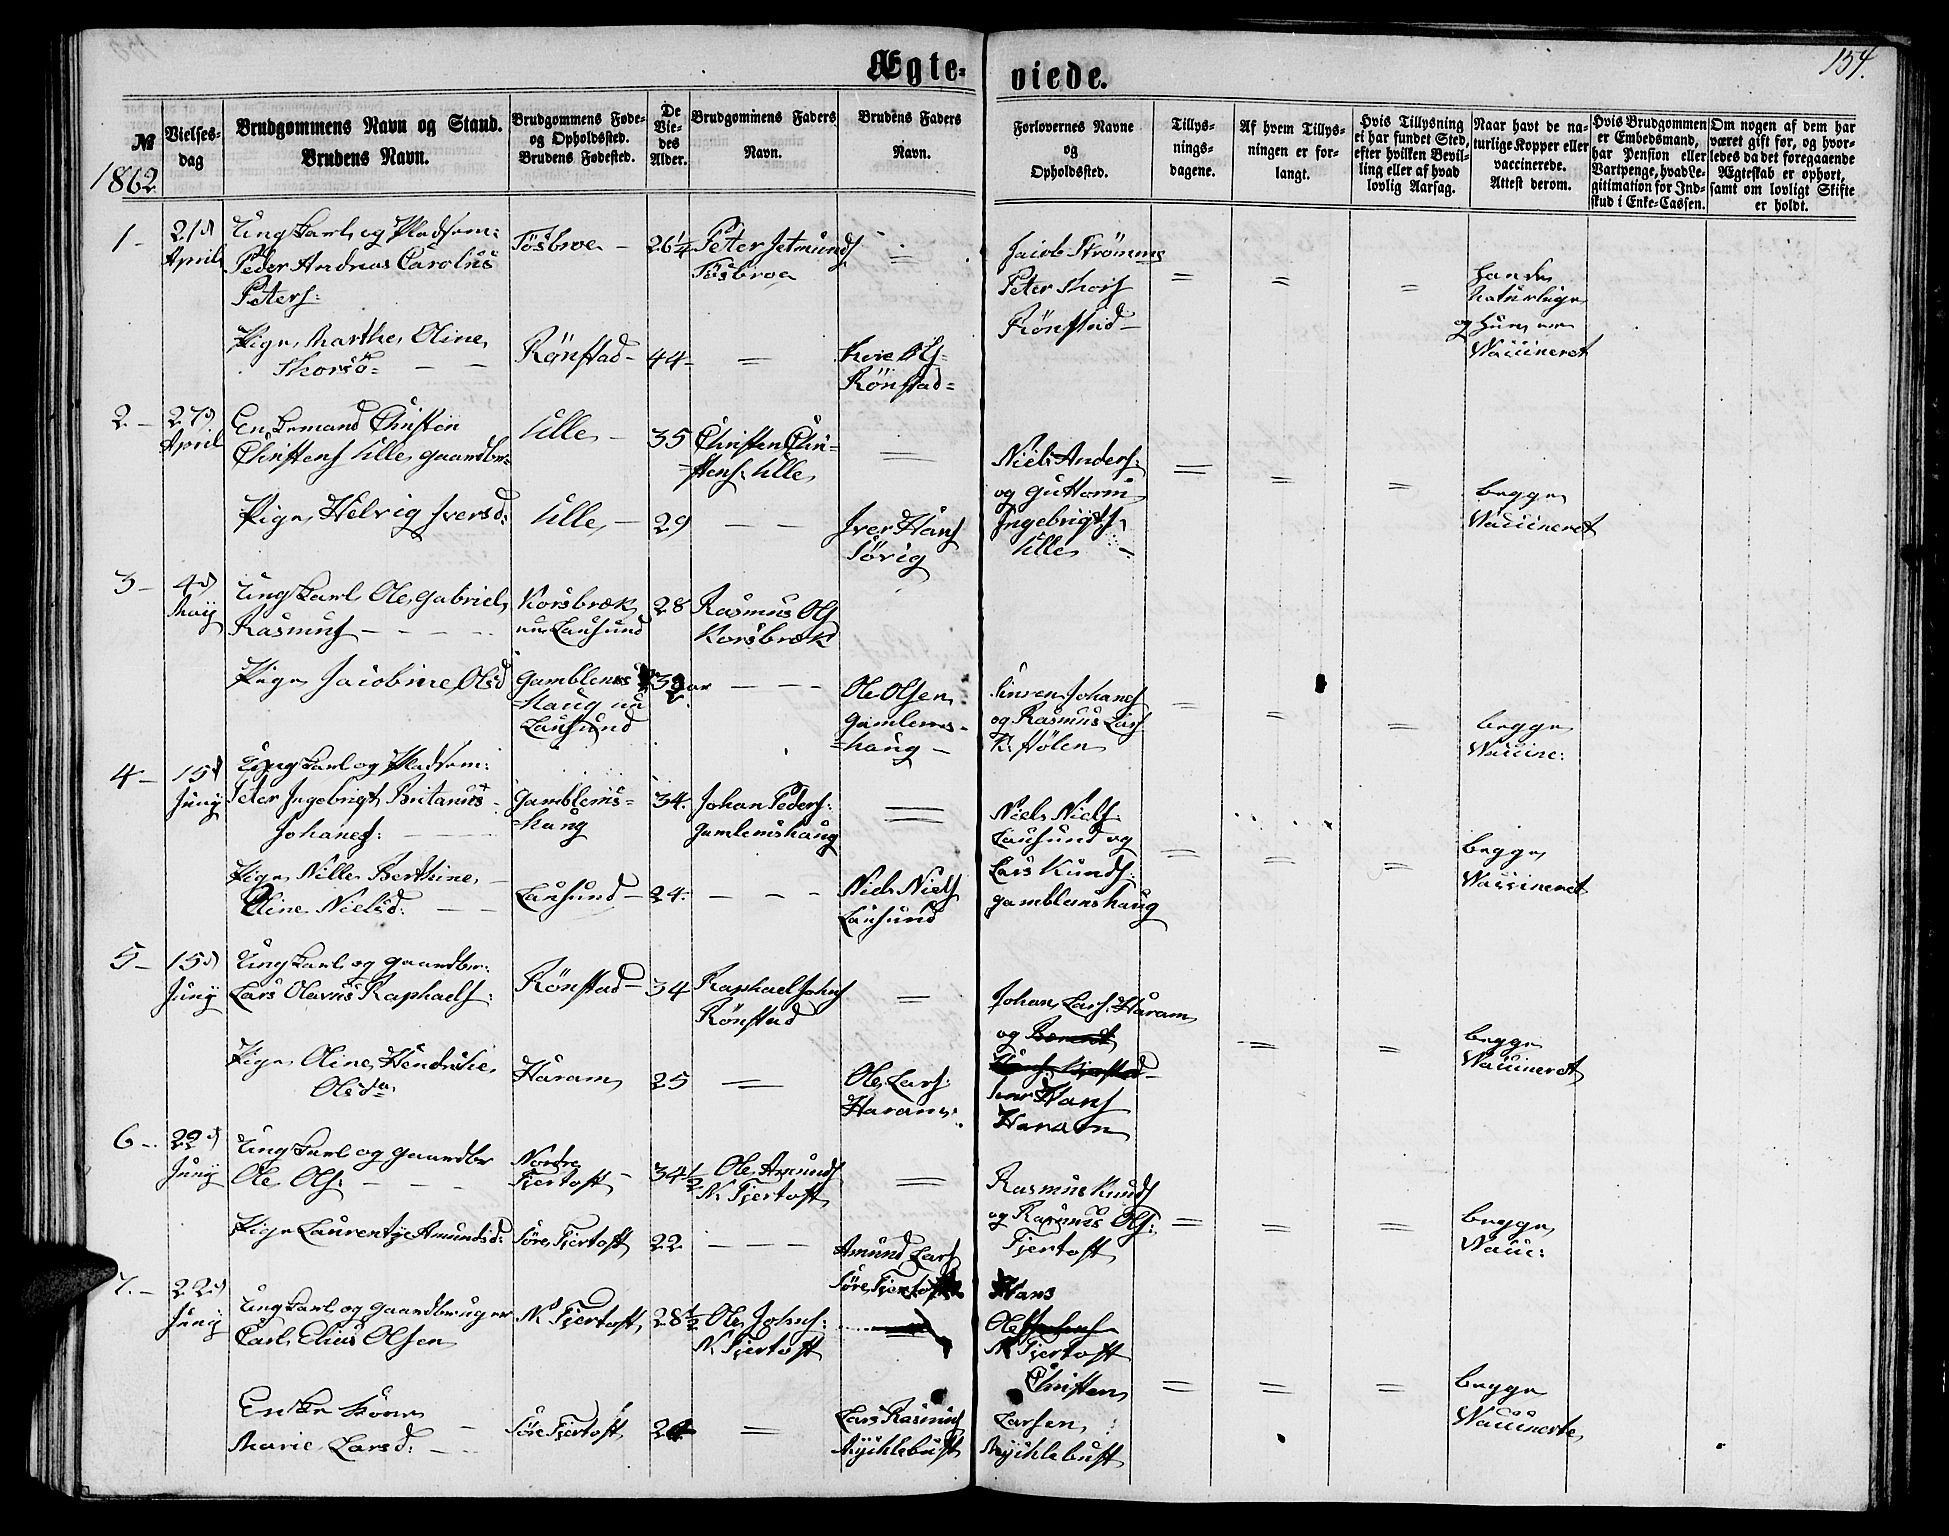 154.
Ægte- viede.
№
Vielses-
dag
Brudgommens Navn og Stand.
Brudens Navn.
Brudgommens Føde-
og Opholdssted.
Brudens Fødested.
De
Vie-
des
Alder.
Brudgommens Faders
Navn.
Brudens Faders
Navn.
Forlovernes Navne
og
Opholdssted.
Tillys-
nings-
dagene.
Af hvem Tillys-
ningen er for-
langt.
Hvis Tillysning
ei har fundet Sted,
efter hvilken Bevil-
ling eller af hvad
lovlig Aarsag.
Naar havt de na-
turlige Kopper eller
vaccinerede.
Attest derom.
Hvis Brudgommen
er Embedsmand,
har Pension eller
Vartpenge, hvad Le-
gitimation for Ind-
skud i Enke-Cassen.
Om nogen af dem har
været gift før, og hvor-
ledes da det foregaaende
Ægteskab er ophørt,
samt om lovligt Skifte
er holdt.
1862
1 -
21d
April
Ungkarl og Pladsem:
Peder Andreas Carolus
Peters:
26 1/4
Peter
Jacob
Peter
Rönstad -
Pige Marthe Oline
Rönstad -
44 -
Rönstad =
Naturlige
og Hun
Waccineret
2 -
27d
April
Enkemand Christen
Christens Ulle gaardbr=
Ulle -
35
Christen Chri-
stens: Ulle
Niels Anders:
og Guttorm
Ingebrigts
Ulle -
Pige Helvig Iversd:
Ulle -
29
Iver Hans
Sørig
begge
Waccineret
3 -
4d
Maij
Ungkarl Ole Gabriel
Rasmus
Korsbræk
nu Lausund
28
Rasmus Ols
Korsbræk
Pige Jacobine Olsd
Haug nu
Lausund
Ole Olsen
Gamlems-
-haug -
Johans
og Rasmus Lars
begge
Waccine:
4 -
15d
Junij
Ungkarl og Pladsem:
Peter Ingebrigt Britanus
Johanes:
Gamblems-
-haug
34.
Johan Peders:
Gamlemshaug
Niels Niels
Lausund og
Lars Knuds:
Gamblemshaug
Pige Nille Berthine
Oline Nielsd:
Lausund -
24.
Niels Niels
Lausund
begge
Waccineret
5 -
15d
Junij
Ungkarl og gaardbr:
Lars Olavus Raphaels:
Rönstad -
34
Raphael Johns
Rönstad
Johan Lars: Haram
og
Hans
Haram
Pige Oline Hendrikke
Olsda
Haram
25
Ole Lars:
Haram:
begge
Waccineret
6 -
22d
Junij
Ungkarl og gaardbr
Ole Ols:
Nordre
Fjertoft -
34 1/2
Ole Amunds
N. Fjertoft
Rasmus Knuds
og Rasmus Ols:
Fjertoft
Pige Laurentje Amundsd:
Søre Fjertoft
22
Amund Lars
Søre Fjertoft
begge
Wacc:
7. -
22d
Junij
Ungkarl og gaardbruger
Carl Elias Olsen
N. Fjertoft
28 1/2
Ole Johns:
N. Fjertoft
Hans
Ole
N. Fjertoft
Christen
Larsen
Myhklebust
Enke
Marie Larsd:
Søre Fjertoft
Lars Rasmus
Myhklebust
begge
Waccinerte